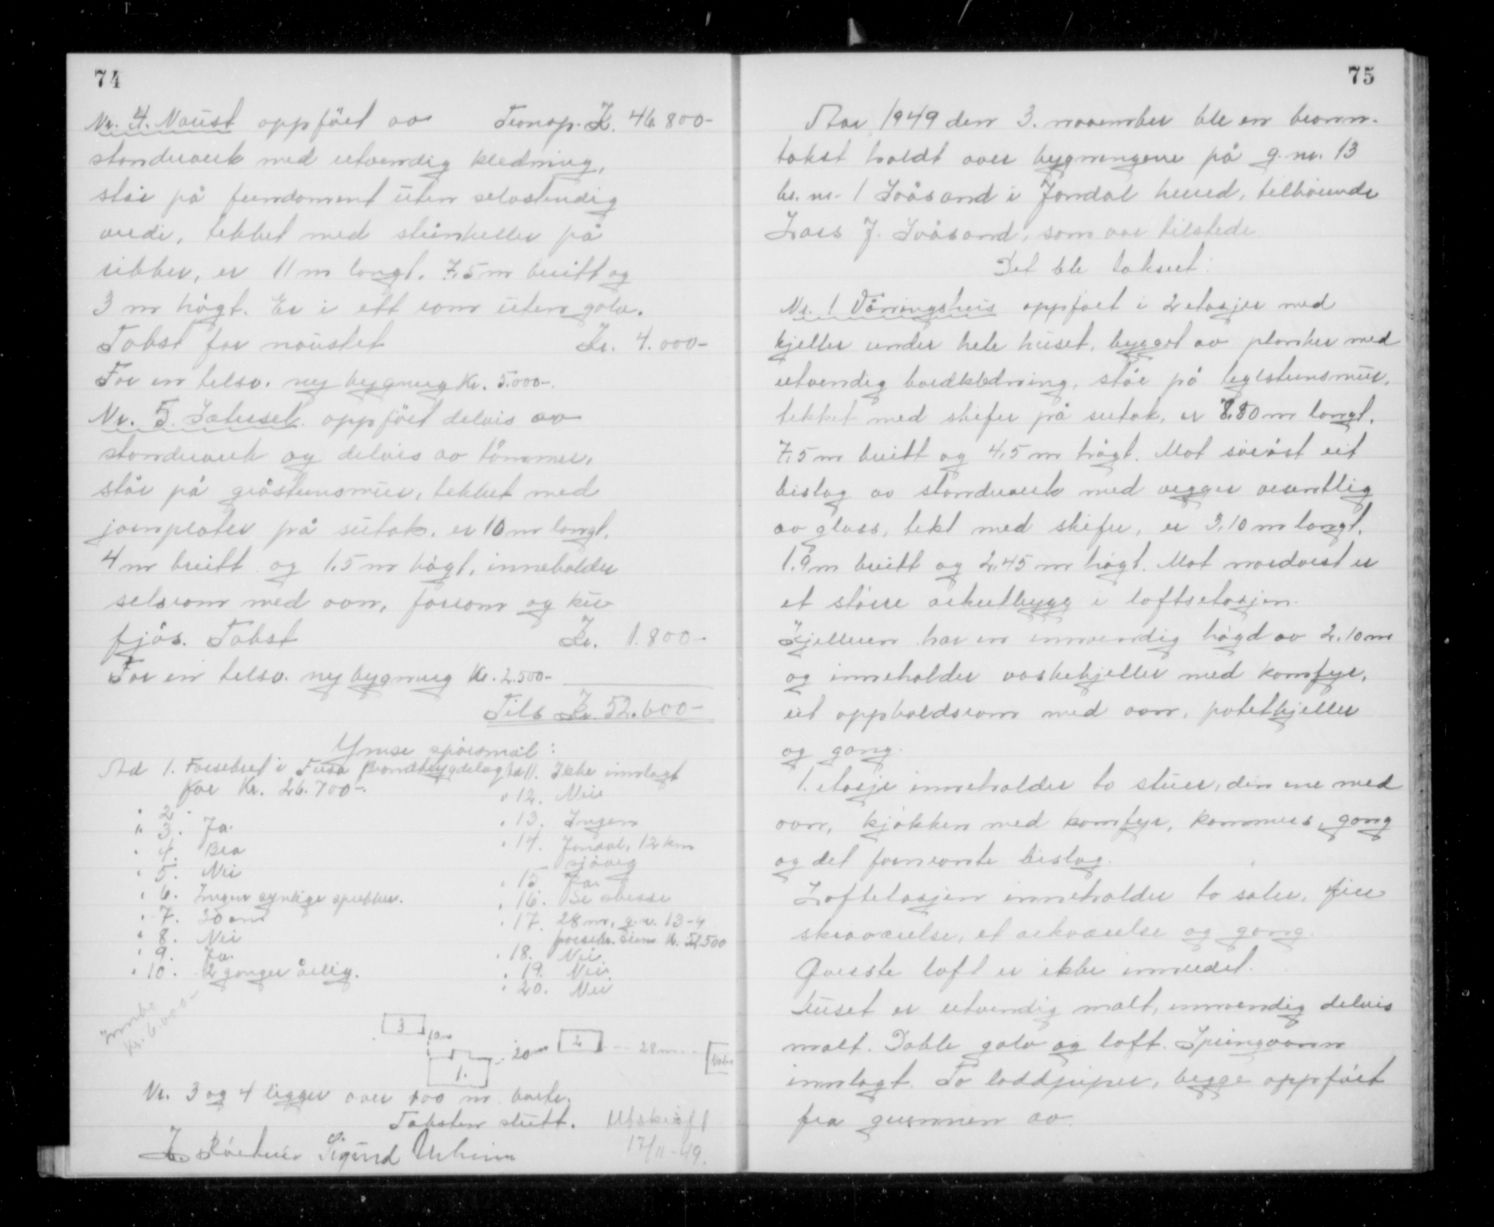 74
Nr. 4. Naust oppført av Transp. Kr. 46.800-
standverk med utvendig kledning,
står på fundament uten selvstendig
verdi, tekket med steinheller på
ribber, er 11 m langt, 7,5 m breitt og
3 m høgt. Er i ett rom uten golv.
Takst for naustet Kr. 4.000-
For en tilsv. ny bygning Kr. 5.000-.
Nr. 5. Sæterset oppført delvis av
standverk og delvis av tømmer,
står på gråsteinsmur, tekket med
jarnplater på sutak, er 10 m langt,
4 m breitt og 1.5 m høgt, inneholder
selsrom med ovn, forrom og
fjøs. Takst Kr. 1.800-
For en tilsv. ny bygning Kr. 2.500-
Tils Kr. 52.600-
Ymse spørsmål:
Ad 1. Forsikret i Fusa Brandtrygdelag
for Kr. 26.700-.
" 2.
" 3. Ja.
" 4. Bra
" 5. Nei
" 6. Ingen synlige sprekker.
" 7. 30 cm
" 8. Nei
" 9. Ja.
" 10. 2 ganger årlig.
Ad 11. Ikke innlagt
" 12. Nei
" 13. Ingen
" 14. Jondal, 12 km
sjøveg
" 15. Ja.
" 16. Se skisse
" 17. 28 m, g.nr. 13-4
Kr. 51.500
" 18. Nei
" 19. Nei
" 20. Nei
Kr. 6.000-
3
10 m
1.
20 m
2
28 m
Nr. 3 og 4 ligger over 100 m borte.
Taksten slutt.
Utskrift
17/11-49.
Sigurd
75
Aar 1949 den 3. november ble en brann-
takst holdt over bygningene på g.nr. 13
br.nr. 1 Svåsand i Jondal herred, tilhørende
Lars J. Svåsand, som var tilstede.
Det ble taksert:
Nr. 1 Våningshus oppført i 2 etasjer med
kjeller under hele huset, bygget av planker med
utvendig bordkledning, står på teglsteinsmur,
tekket med skifer på sutak, er 8.80 m langt,
7,5 m breitt og 4,5 m høgt. Mot sørøst eit
bislag av standverk med vegger vesentlig
av glass, tekt med skifer, er 3.10 m langt,
1.9 m breitt og 2,45 m høgt. Mot nordvest er
et større arkutbygg i loftsetasjen.
Kjelleren har en innvendig høgd av 2.10 m
og inneholder vaskekjeller med komfyr,
eit oppholdsrom med ovn, potetkjeller
og gang.
1. etasje inneholder to stuer, den ene med
ovn, kjøkken med komfyr, kammers, gang
og det fornevnte bislag.
Loftetasjen inneholder to saler, fire
skråværelse, et arkværelse og gang.
Øverste loft er ikke innredet.
Huset er utvendig malt, innvendig delvis
malt. Doble golv og loft. Springvann
innlagt. To loddpiper, begge oppført
fra grunnen av.